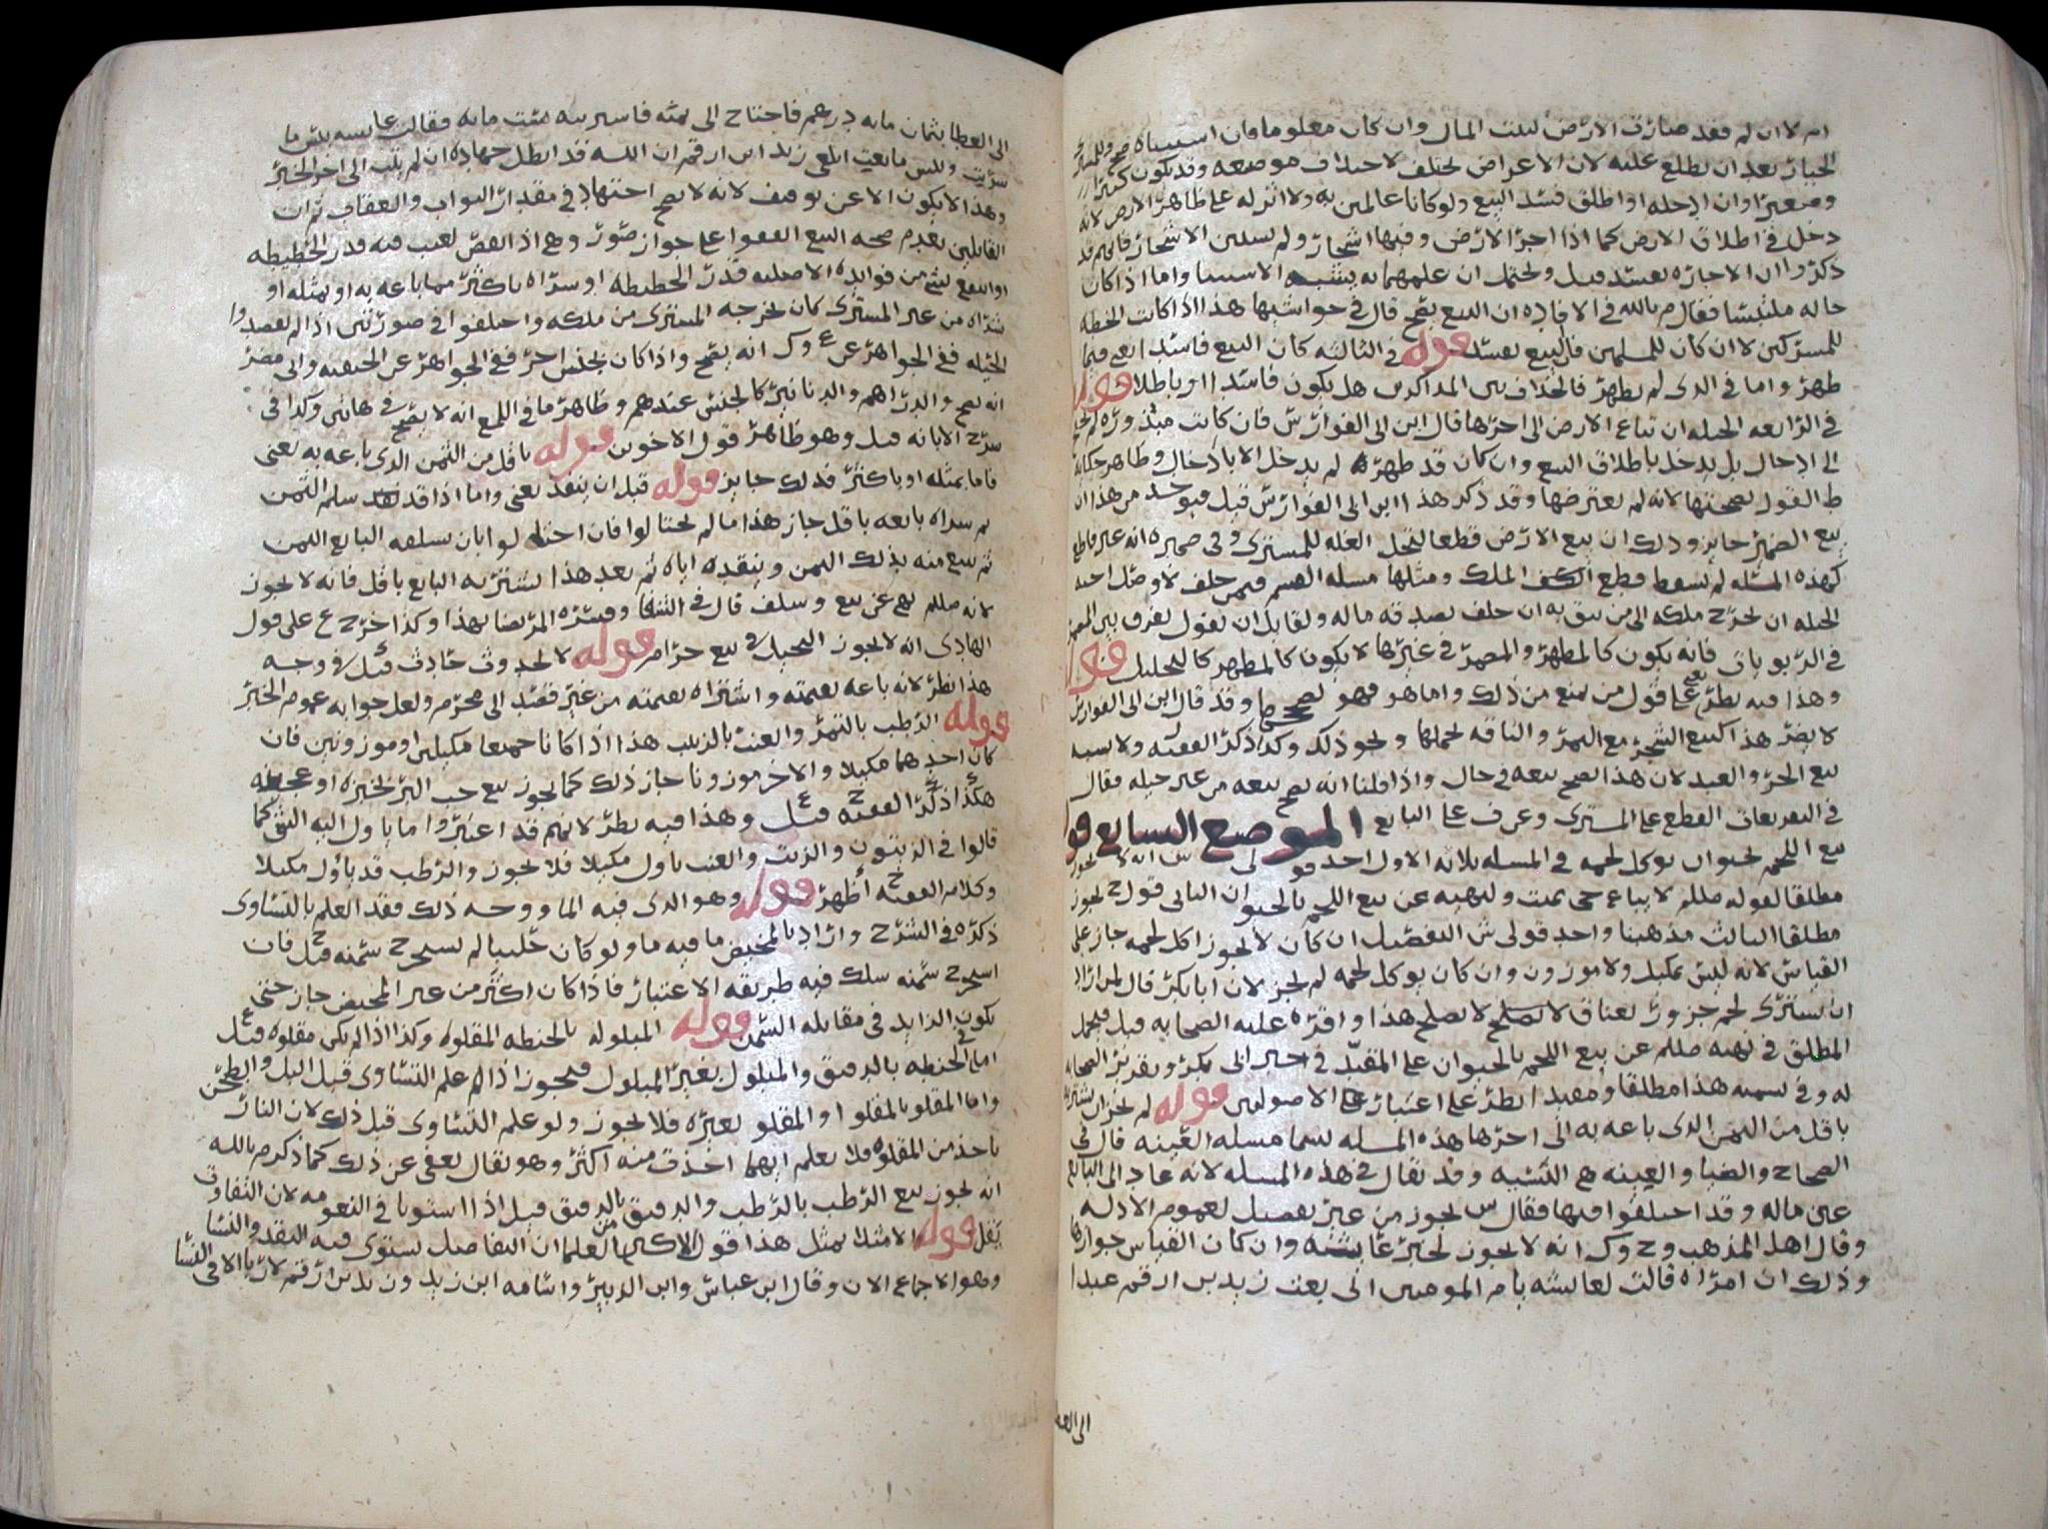 ام لا ان لم فقد صارت الارض لبيت المال وان كان معلوما فان استثناه صح وللمشتري
الخيار بعد ان يطلع عليه لان الاعراض تختلف لاختلاف موضعه وقد يكون كثيرا
وصغيرا وان ادخله او اطلق فسد البيع ولو كانا عالمين به ولا اثر له على ظاهر الارض لانه
دخل في اطلاق الارض كما اذا اجر الارض وفيها اشجار ولم يستثن الاشجار فانهم قد
ذكروا ان الاجاره تفسد قيل ويحتمل ان علمهما به يشبه الاستثنا واما اذا كان
حاله ملتبسا فقال م بالله في الافاده ان البيع يصح قال في حواشيها هذا اذا كانت الخطه
للمشركين لا ان كان للمسلمين فالبيع يفسد قوله في الثالثه كان البيع فاسدا يعني فيما
ظهر واما في الذي لم يظهر فالخلاف بين المذاكرين هل يكون فاسدا او باطلا قوله
في الرابعه الحيله ان تباع الارض الى اخرها قال ابن ابي الفوارس فان كانت مبذوره لم يحتج
الى ادخال بل يدخل باطلاق البيع وان كان قد ظهر لم يدخل الا بادخال وظاهر حكايه
ط القول بصحتها لانه لم يعترضها وقد ذكر هذا ابن ابي الفوارس قيل فيوخذ من هذا ان
بيع الضمير جايز وذلك ان بيع الارض قطعا لتحل الغله للمشتري وفي ضميره انه غير قاطع
كهذه المسئله لم يسقط قطع الملك ومثلها مسئله القسم فيمن حلف لاوصل اخيه
الحيله ان يخرج ملكه الى من يثق به ان حلف بصدقه ماله ولقايل ان يقول يفرق بين المضمر
في الربويات فانه يكون كالمظهر والمضمر في غيرها لا يكون كالمظهر كالتحليل قوله
وهذا فيه نظر يعني على قول من يمنع من ذلك واما هو فهو يصححها وقد قال ابن ابي الفوارس
لا يضر هذا كبيع الشجر مع الثمر والناقه بحملها ونحو ذلك وكذا ذكر الفقيه ولا يشبه
بيع الحر والعبد لان هذا يصح بيعه في حال واذا قلنا انه يصح بيعه من غير حيله فقال
في التفريعات القطع على المشتري وعرف على البايع الموضع السابع قوله
بيع اللحم بحيوان يوكل لحمه في المسئله ثلاثه الاول احد قولي ش انه لا يجوز
مطلقا لقوله صللم لا يباع حي بميت ولنهيه عن بيع اللحم بالحيوان الثاني قول ح يجوز
مطلقا الثالث مذهبنا واحد قولي ش التفصيل ان كان لا يجوز اكل لحمه جاز على
القياس لانه ليس بمكيل ولا موزون وان كان يوكل لحمه لم يجز لان ابا بكر قال لمن اراد
ان يشتري لحم جزور بعناق لا يصلح لا يصلح هذا واقره عليه الصحابه قيل فيحمل
المطلق في نهيه صللم عن بيع اللحم بالحيوان على المقيد في خبر ابي بكر وتقرير الصحابه
له وفي تسميه هذا مطلقا ومقيدا نظر على اعتبار الاصوليين قوله لم يجز ان يشتريه
باقل من الثمن الذي باعه به الى اخرها هذه المسئله تسما مسئله العينه قال في
الصحاح والضيا والعينه هي النسيه وقد يقال في هذه المسئله لانه عاد الى البايع
عين ماله وقد اختلفوا فيها فقال س يجوز من غير تفصيل لعموم الادله
وقال اهل المذهب و ح وك انه لا يجوز لخبر عايشه وان كان القياس جوازها
وذلك ان امراه قالت لعايشه يا ام المومنين اني بعت زيد بن ارقم عبدا
الى العطا
الى العطا بثمان مايه درهم فاحتاج الى ثمنه فاشتريته بست مايه فقالت عايشه بئس ما
شريت وبئس ما بعت ابلغي زيد ابن ارقم ان الله قد ابطل جهاده ان لم يتب الى اخر الخبر
وهذا لا يكون الا عن توقيف لانه لا يصح اجتهاد في مقدار الثواب والعقاب ثم ان
القايلين بعدم صحه البيع اتفقوا على جواز صور وهي اذا نقص لعيب فيه قدر الحطيطه
او انتفع بشي من فوايده الاصليه قدر الحطيطه او شراه باكثر مما باعه به او بمثله او
شراه من غير المشتري كان يخرجه المشتري من ملكه واختلفوا في صورتين اذا لم يقصدوا
الحيله ففي الجواهر عن ع وك انه يصح واذا كان بجنس اخر ففي الجواهر عن الحنفيه وابي مضر
انه يصح والدراهم والدنانير كالجنس عندهم وظاهر ما في اللمع انه لا يصح في هاتين وكذا في
شرح الابانه قيل وهو ظاهر قول الاخوين قوله باقل من الثمن الذي باعه به يعني
فاما بمثله او باكثر فذلك جايز قوله قبل ان ينقد يعني واما اذا قد سلم الثمن
ثم شراه بايعه باقل جاز هذا ما لم يحتالوا فان احتالوا بان يسلفه البايع الثمن
ثم يبيع منه بذلك الثمن وينقده اياه ثم بعد هذا يشتريه البايع باقل فانه لا يجوز
لانه صللم نهى عن بيع وسلف قال في الشفا وفسره المرتضا بهذا وكذا خرج ع على قول
الهادي انه لا يجوز التحيل في بيع حرام قوله لا لحدوث حادث قيل في وجه
هذا نظر لانه باعه بقيمته واشتراه بقيمته من غير قصد الى محرم ولعل جوابه عموم الخبر
قوله الرطب بالتمر والعنب بالزبيب هذا اذا كانا جميعا مكيلين او موزونين فان
كان احدهما مكيلا والاخر موزونا جاز ذلك كما يجوز بيع حب البر بخبزه او عجينه
هكذا ذكر الفقيه ح قيل ع وهذا فيه نظر لانهم قد اعتبروا ما ياول اليه الشي كما
قالوا في الزيتون والزيت والعنب ياول مكيلا فلا يجوز والرطب قد ياول مكيلا
وكلام الفقيه ح اظهر قوله وهو الذي فيه الما ووجه ذلك فقد العلم بالتساوي
ذكره في الشرح واراد بالمخيض ما فيه ما ولو كان حليبا لم يستخرج سمنه قيل ح فان
استخرج سمنه سلك فيه طريقه الاعتبار فاذا كان اكثر من غير المخيض جاز حتى
يكون الزايد في مقابله السمن قوله المبلوله بالحنطه المقلوه وكذا اذا لم يكن مقلوه قيل ع
اما في الحنطه بالدقيق والمبلول بغير المبلول فيجوز اذا لم علم التساوي قبل البل والطحن
واما المقلو بالمقلو او المقلو بغيره فلا يجوز ولو علم التساوي قبل ذلك لان النار
تاخذ من المقلوه فلا يعلم ايهما اخذت منه اكثر وهو يقال يعفى عن ذلك كما ذكر م بالله
انه يجوز بيع الرطب بالرطب والدقيق بالدقيق قيل اذا استويا في النعومه لان التفاوت
يقل قوله الا مثلا بمثل هذا قول الاكثر من العلما ان التفاضل يستوي فيه النقد والنسا
وهو الاجماع الان وقال ابن عباس وابن الزبير واسامه ابن زيد وزيد بن ارقم لا ربا الا في النسا